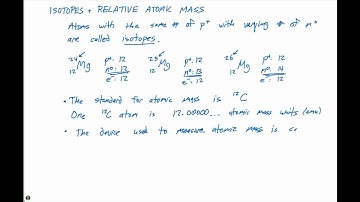 ISOTOPES + RELATIVE ATOMIC MASS
Atoms with the same # of p⁺ with varying # of n⁰
are called isotopes.
²⁴₁₂Mg p⁺: 12 ²⁵₁₂Mg p⁺: 12 ²⁶₁₂Mg p⁺: 12
n⁰: 12 n⁰: 13 n⁰: 14
e⁻: 12 e⁻: 12 e⁻: 12
• The standard for atomic mass is ¹²C
One ¹²C atom is 12.00000... atomic mass units (amu)
• The device used to measure atomic mass is c